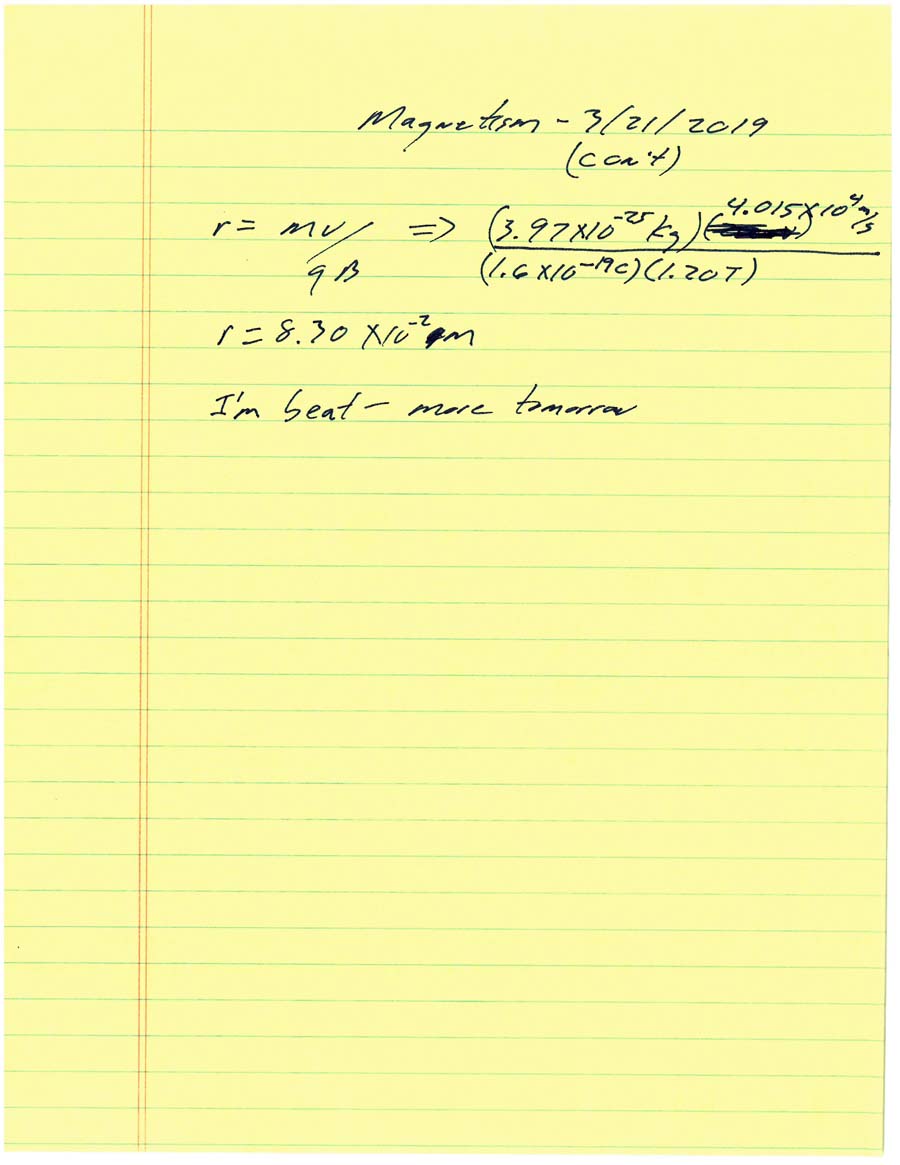 Magnetism - 3/21/2019
(con't)
r = mv/qB => (3.97x10^-25 kg)(4.015x10^4 m/s)
(1.6x10^-19C)(1.20T)
r = 8.30 x10^-2 m
I'm beat - more tomorrow